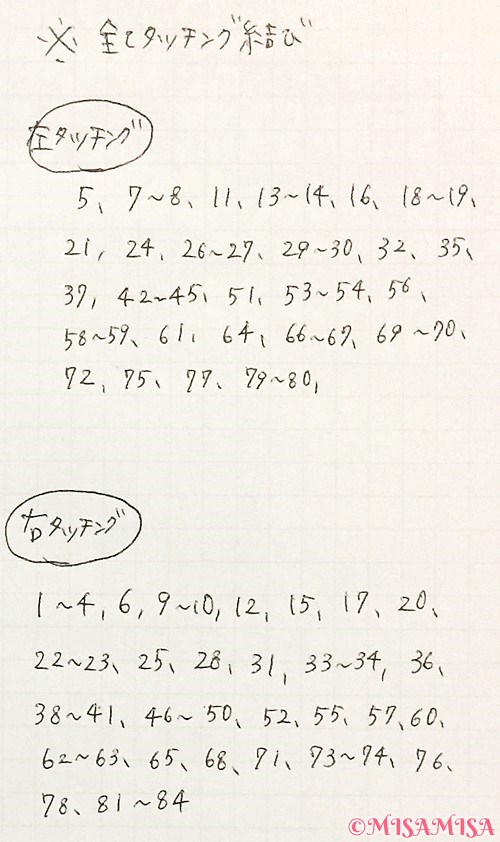 ※ 全てタッチング結び
左タッチング
5、7〜8、11、13〜14、16、18〜19、
21、24、26〜27、29〜30、32、35、
37、42〜45、51、53〜54、56、
58〜59、61、64、66〜67、69〜70、
72、75、77、79〜80、
右タッチング
1〜4、6、9〜10、12、15、17、20、
22〜23、25、28、31、33〜34、36、
38〜41、46〜50、52、55、57、60、
62〜63、65、68、71、73〜74、76、
78、81〜84
©MISAMISA